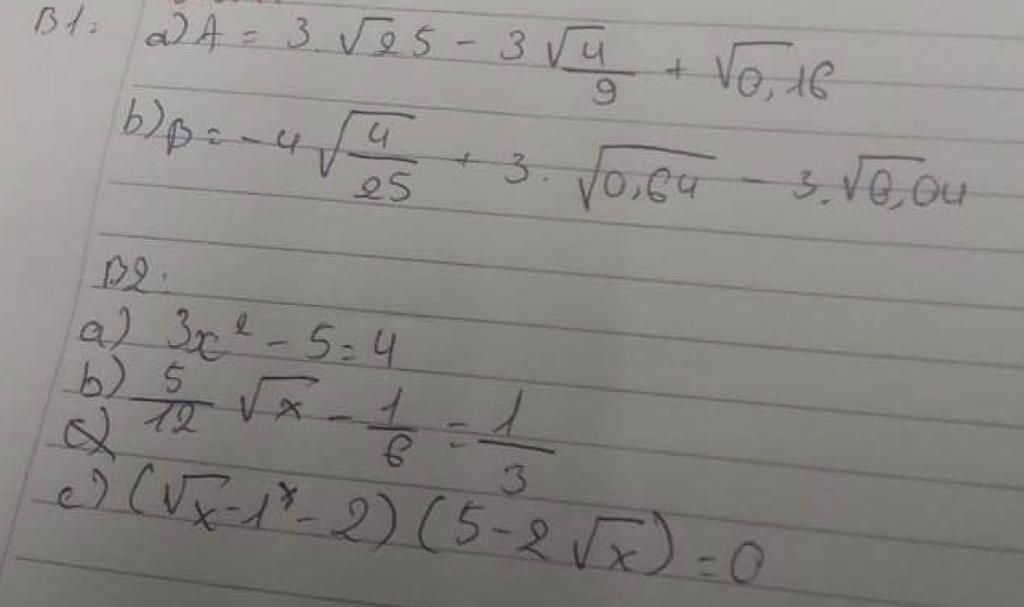 B1: a) A = 3.√25 - 3√4/9 + √0,16
b) B = -4√4/25 + 3.√0,64 - 3.√0,04
B2:
a) 3x² - 5 = 4
b) 5/12 √x - 1/6 = 1/3
c) (√x-1 - 2)(5 - 2√x) = 0